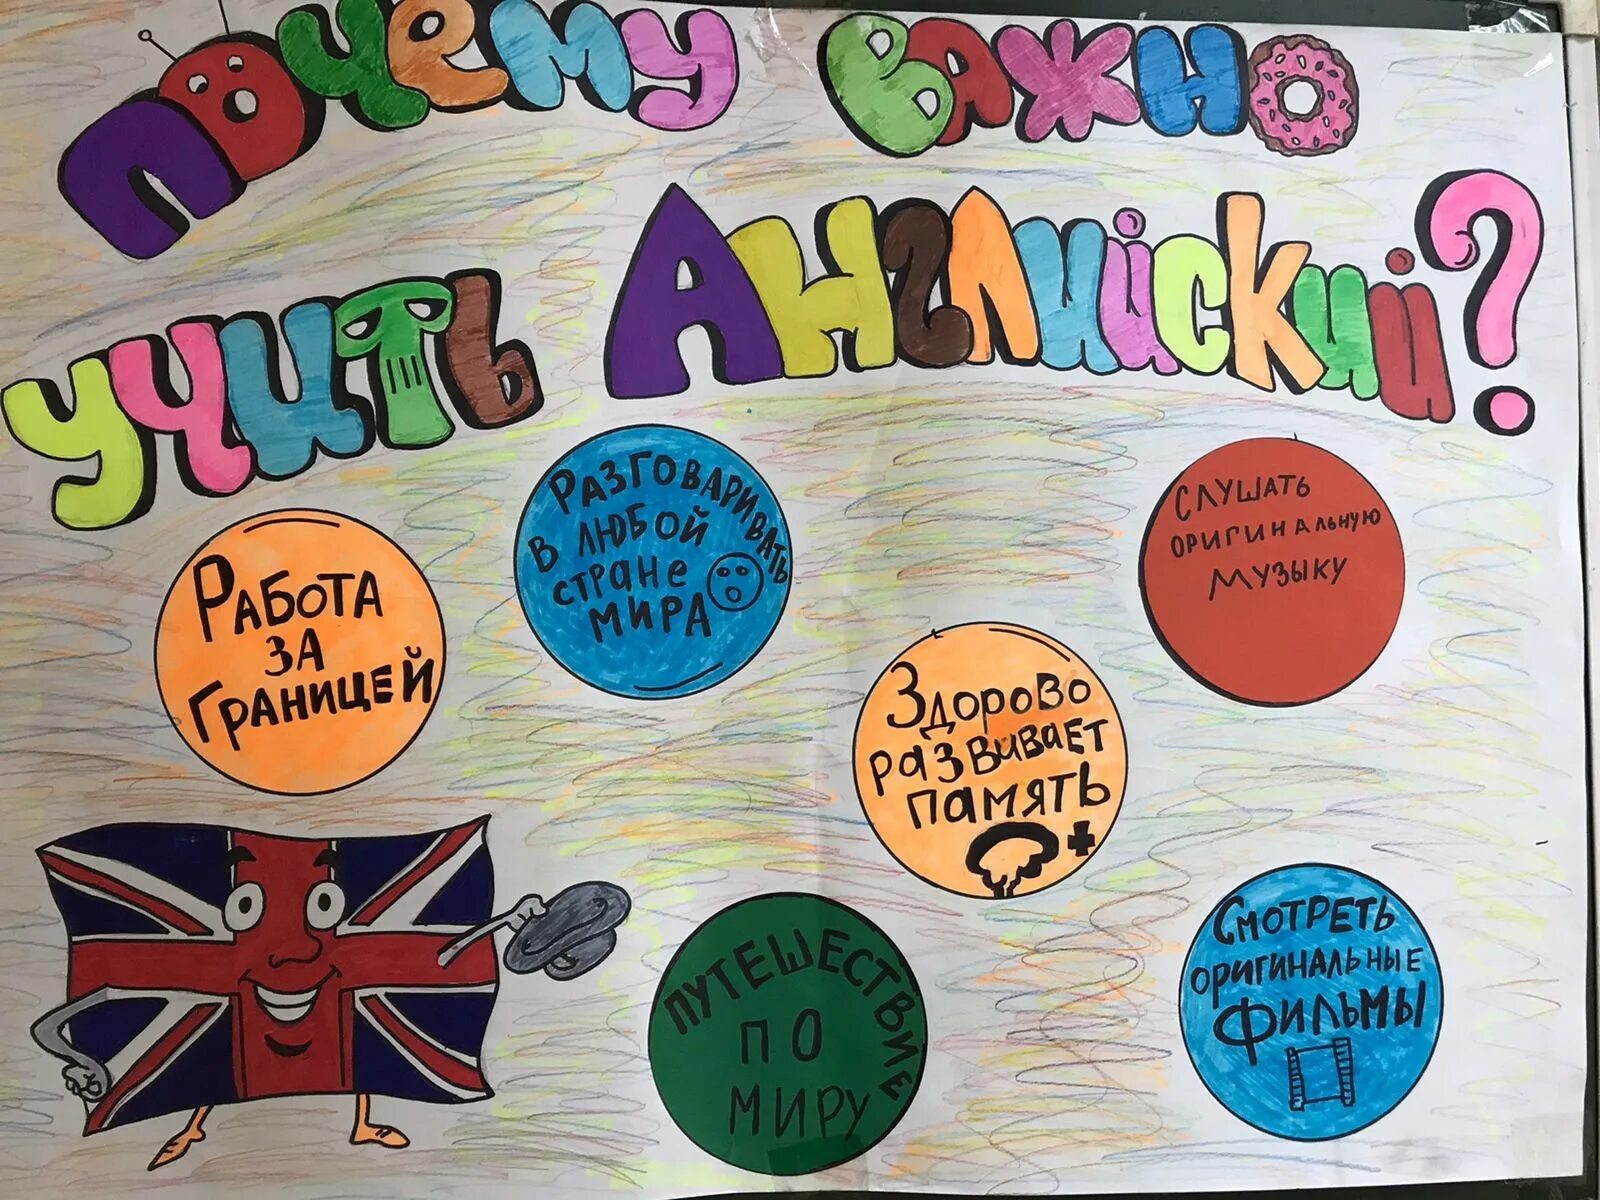 Почему важно
учить Английский?
Разговаривать
в любой
стране
мира
Слушать
оригинальную
музыку
Работа
за
границей
Здорово
развивает
память
Путешествие
по
миру
Смотреть
оригинальные
фильмы